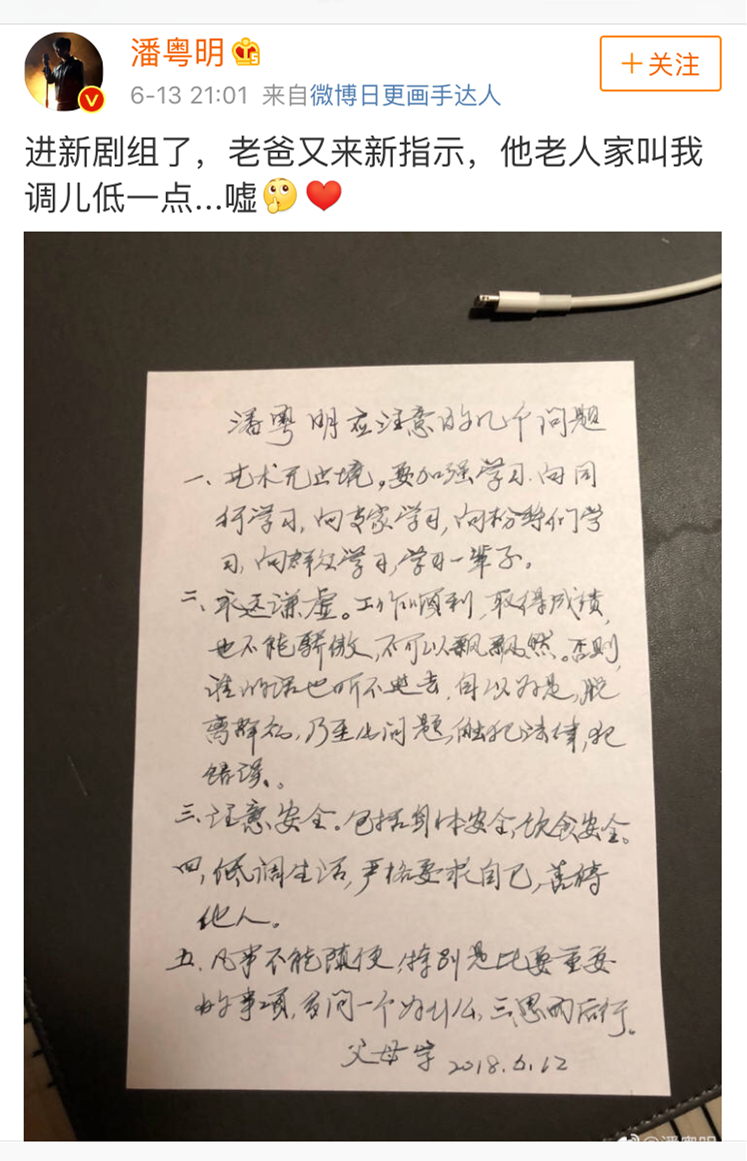 潘粤明
6-13 21:01 来自微博日更画手达人
＋关注
进新剧组了，老爸又来新指示，他老人家叫我
调儿低一点...嘘
潘粤明应注意的几个问题
一、艺术无止境，要加强学习.向同
行学习，向专家学习，向粉丝们学
习，向群众学习，学习一辈子。
二、永远谦虚。工作顺利，取得成绩，
也不能骄傲，不可以飘飘然。否则，
谁的话也听不进去，自以为是，脱
离群众，乃至出问题，触犯法律，犯
错误。
三、注意安全。包括身体安全，饮食安全。
四，低调生活，严格要求自己，善待
他人。
五、凡事不能随便，特别是比要重要
的事项，多问一个为什么，三思而后行。
父母字 2018.6.12
@潘粤明